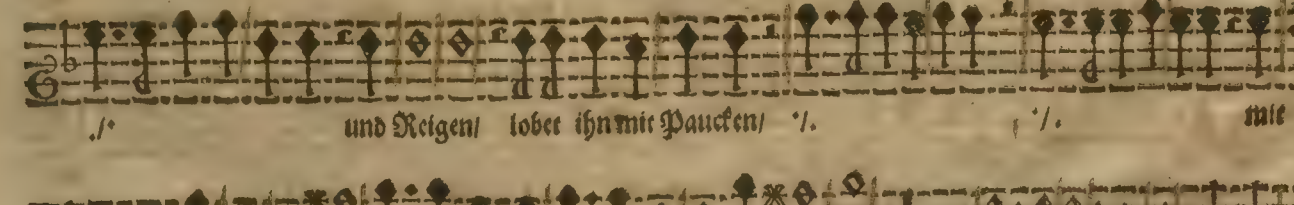 ./. und Reigen/ lobet ihn mit Paucken/ ./. ./. mit